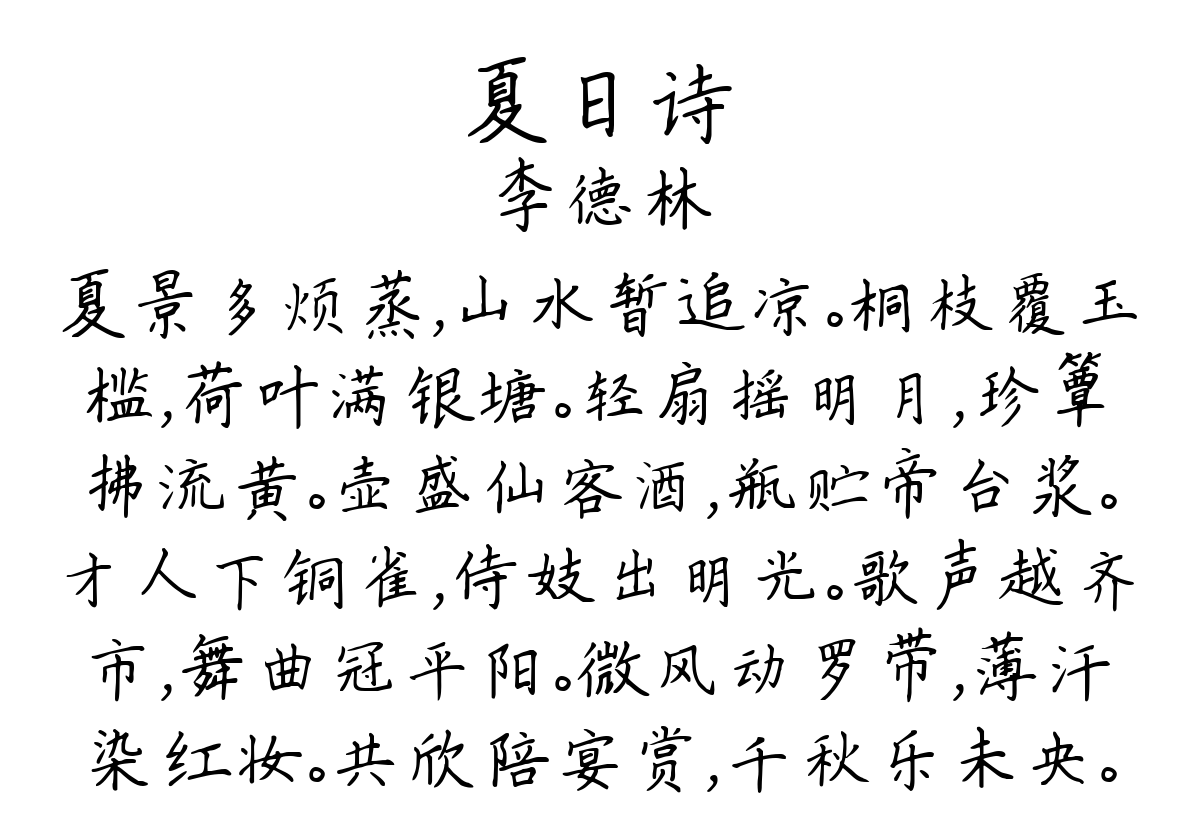 夏日诗
李德林
夏景多烦蒸,山水暂追凉。桐枝覆玉
槛,荷叶满银塘。轻扇摇明月,珍簟
拂流黄。壶盛仙客酒,瓶贮帝台浆。
才人下铜雀,侍妓出明光。歌声越齐
市,舞曲冠平阳。微风动罗带,薄汗
染红妆。共欣陪宴赏,千秋乐未央。